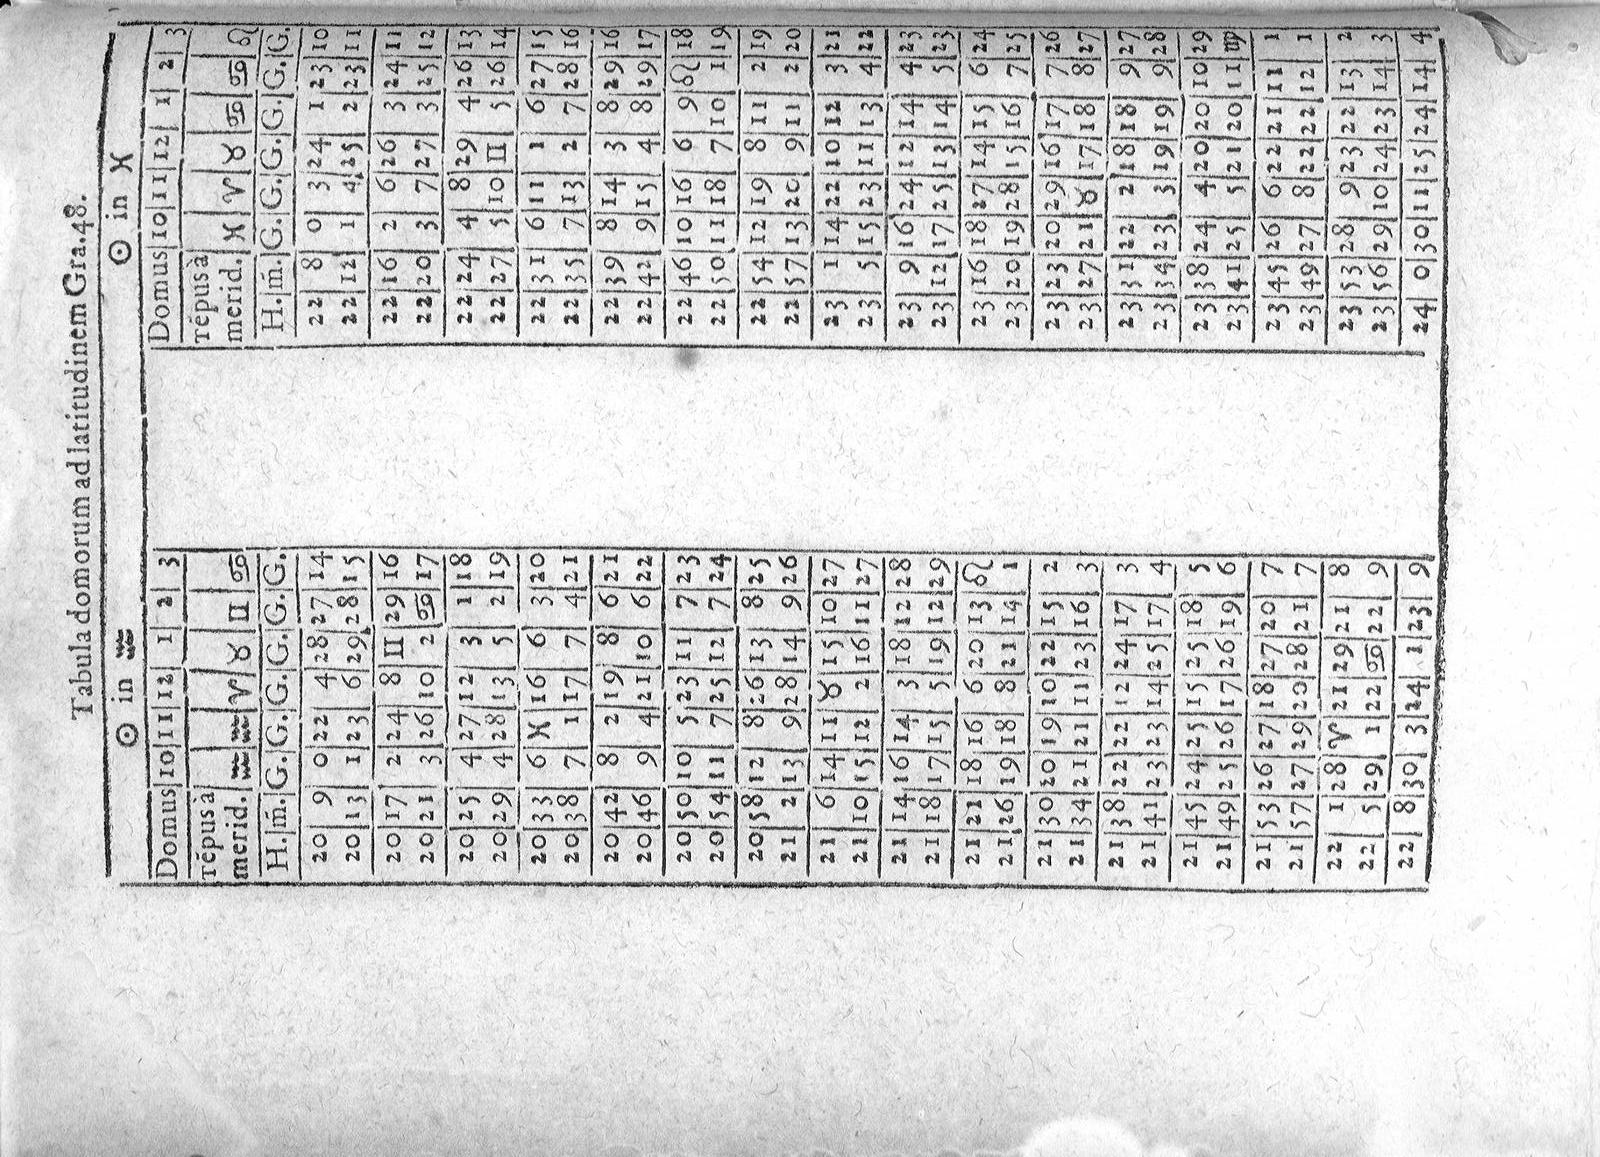 Tabula domorum ad latitudinem Gra.48.
☉ in ♒
Domus|10|11|12|1|2|3
Tépus à
merid.|♒|♒|♈|♉|♊|♋
H.|m̄.|G.|G.|G.|G.|G.|G.
20|9|0|22|4|28|27|14
20|13|1|23|6|29|28|15
20|17|2|24|8|♊|29|16
20|21|3|26|10|2|♋|17
20|25|4|27|12|3|1|18
20|29|4|28|13|5|2|19
20|33|6|♓|16|6|3|20
20|38|7|1|17|7|4|21
20|42|8|2|19|8|6|21
20|46|9|4|21|10|6|22
20|50|10|5|23|11|7|23
20|54|11|7|25|12|7|24
20|58|12|8|26|13|8|25
21|2|13|9|28|14|9|26
21|6|14|11|♉|15|10|27
21|10|15|12|2|16|11|27
21|14|16|14|3|18|12|28
21|18|17|15|5|19|12|29
21|21|18|16|6|20|13|♌
21|26|19|18|8|21|14|1
21|30|20|19|10|22|15|2
21|34|21|21|11|23|16|3
21|38|22|22|12|24|17|3
21|41|23|23|14|25|17|4
21|45|24|25|15|25|18|5
21|49|25|26|17|26|19|6
21|53|26|27|18|27|20|7
21|57|27|29|20|28|21|7
22|1|28|♈|21|29|21|8
22|5|29|1|22|♋|22|9
22|8|30|3|24|1|23|9
☉ in ♓
Domus|10|11|12|1|2|3
Tépus à
merid.|♓|♈|♉|♋|♋|♌
H.|m̄.|G.|G.|G.|G.|G.|G.
22|8|0|3|24|1|23|10
22|12|1|4|25|2|23|11
22|16|2|6|26|3|24|11
22|20|3|7|27|3|25|12
22|24|4|8|29|4|26|13
22|27|5|10|♊|5|26|14
22|31|6|11|1|6|27|15
22|35|7|13|2|7|28|16
22|39|8|14|3|8|29|16
22|42|9|15|4|8|29|17
22|46|10|16|6|9|♌|18
22|50|11|18|7|10|1|19
22|54|12|19|8|11|2|19
22|57|13|20|9|11|2|20
23|1|14|22|10|12|3|21
23|5|15|23|11|13|4|22
23|9|16|24|12|14|4|23
23|12|17|25|13|14|5|23
23|16|18|27|14|15|6|24
23|20|19|28|15|16|7|25
23|23|20|29|16|17|7|26
23|27|21|♉|17|18|8|27
23|31|22|2|18|18|9|27
23|34|23|3|19|19|9|28
23|38|24|4|20|20|10|29
23|41|25|5|21|20|11|♍
23|45|26|6|22|21|11|1
23|49|27|8|22|22|12|1
23|53|28|9|23|22|13|2
23|56|29|10|24|23|14|3
24|0|30|11|25|24|14|4